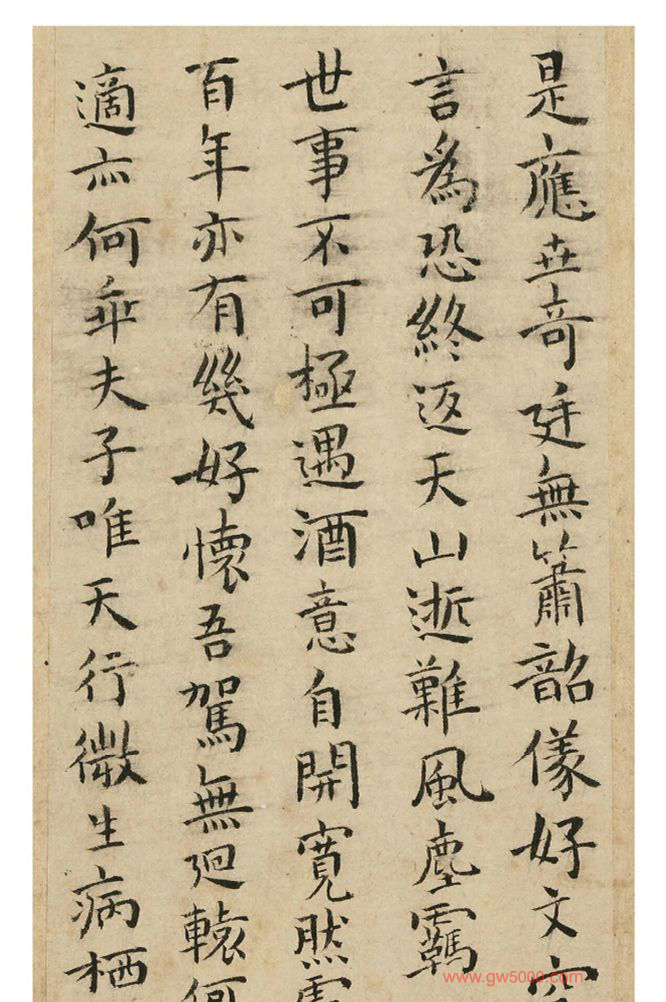 是應世奇廷無簫韶儀好文
言為恐終返天山逝難風塵羈
世事不可極遇酒意自開寬然
百年亦有幾好懷吾駕無迴轅何
適亦何乖夫子唯天行微生病栖
www.gw5000.com